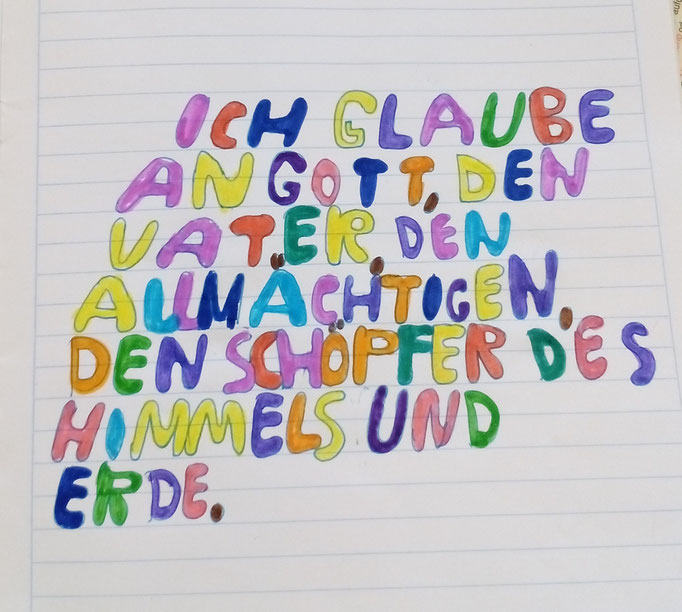 ICH GLAUBE
AN GOTT, DEN
VATER, DEN
ALLMÄCHTIGEN,
DEN SCHÖPFER DES
HIMMELS UND
ERDE.